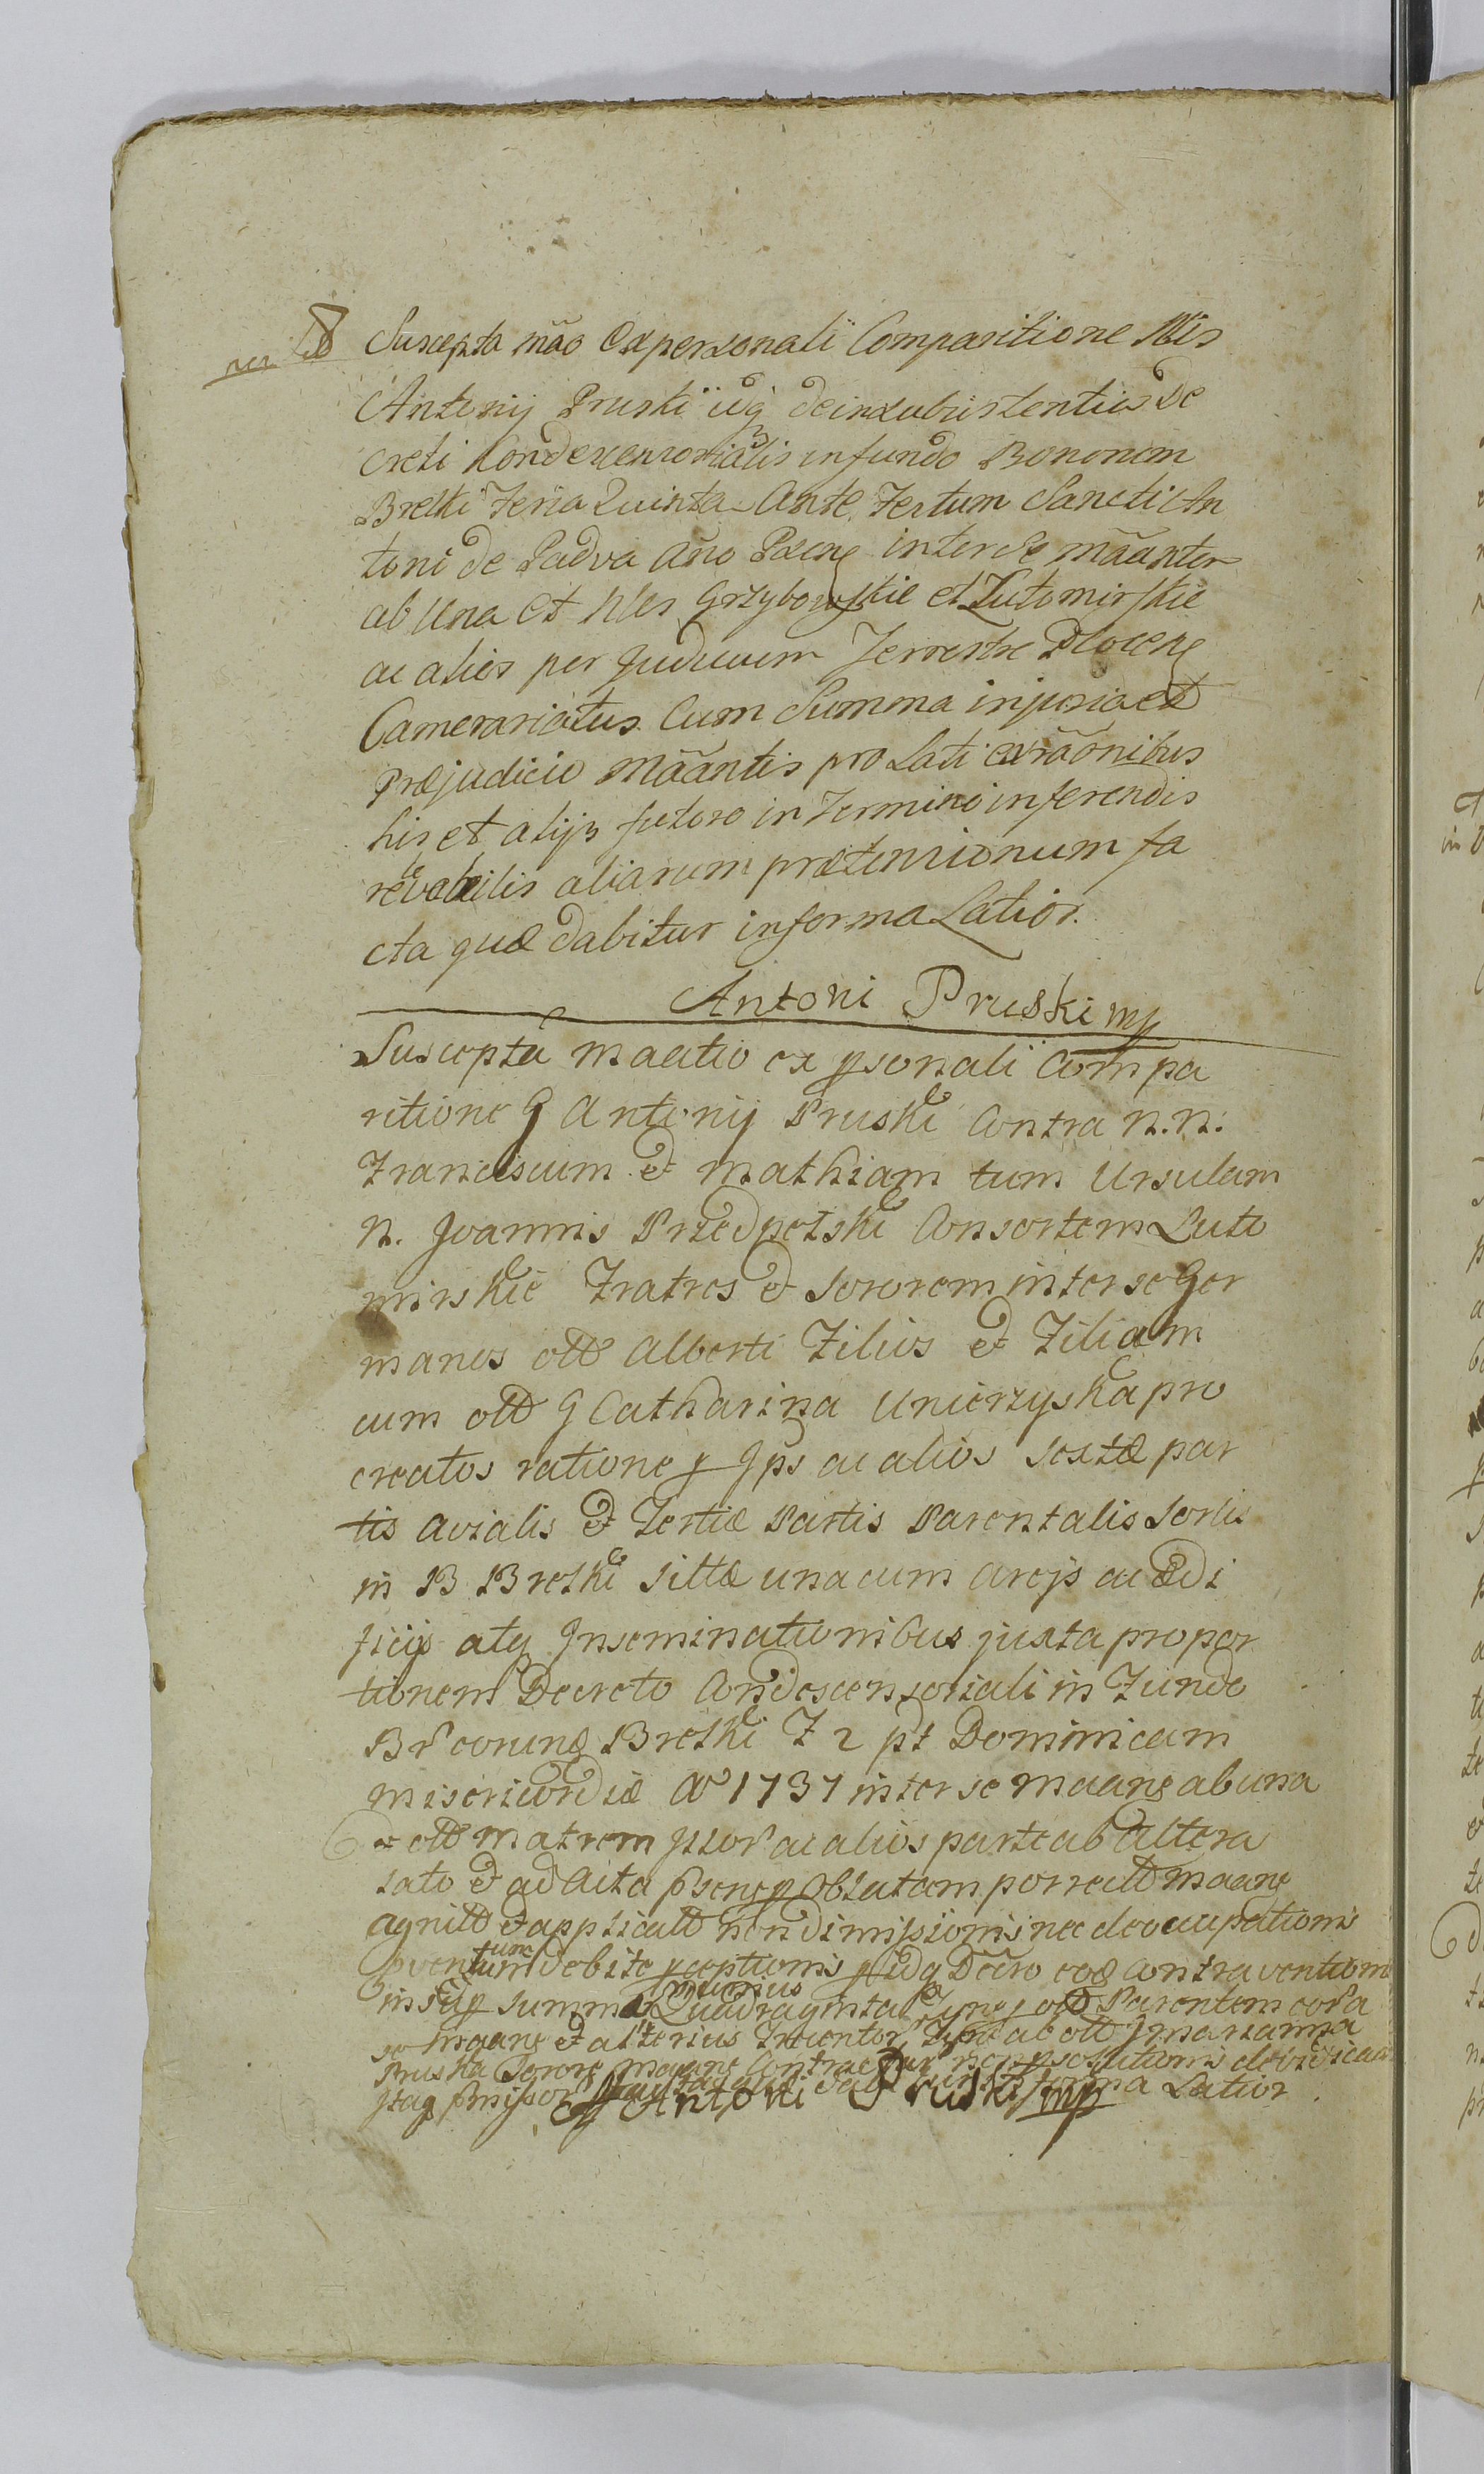 Suscepta mão ex personali Comparitione Nlis
Antonij Pruski iidq de insubsistentia De
creti Condescensorialis in fundo Bononem
Bretki Feria Quinta Ante Festum Sancti An
toni de Padva Año Pxens inter se mãanter
ab Una et Nles Grzybowskie et Lutomirskie
ac alios per Judicium Terrestre Plocens
Camerariatus Cum Summa injuria et
Præjudicio Mãantis pro Lati ex rãonibus
his et alijs futuro in Termino inferendis
aliarum prætensionum fa
cta quæ dabitur in forma Latior.
Antoni Pruski mp
Suscepta maatio ex psonali Compa
ritione G Antonij Pruski Contra N.N.
Franciscum et Mathiam tum Ursulam
N. Joannis Przedpełski Consortem Luto
mirskie Fratres et Sororem inter se Ger
manos olt Alberti Filios et Filiam
cum olt G Catharina Unierzyska pro
creatos ratione p Jps ac alios Sextæ par
tis avialis et Tertiæ Partis Parentalis Sortis
in B Bretki sittæ una cum areijs ac ædi
ficijs atq Inseminationibus juxta propor
tionem Decreto Condescensoriali in Fundo
Bretki F 2 pt Dominicam
misericordiæ Ao 1737 inter se maans ab una
et olt Matrem ac alios parte ab altera
lato et ad Acta p Oblatam porrectt maans
agnitt et applicatt non dimissionis nec deoccupationis
debite pceptionis Decro contraventionis
summa Quadraginta olt Parentem
maans et alterius ab olt Marianna
Pruska Sorore maans
forma Latior
Antoni Pruski mp